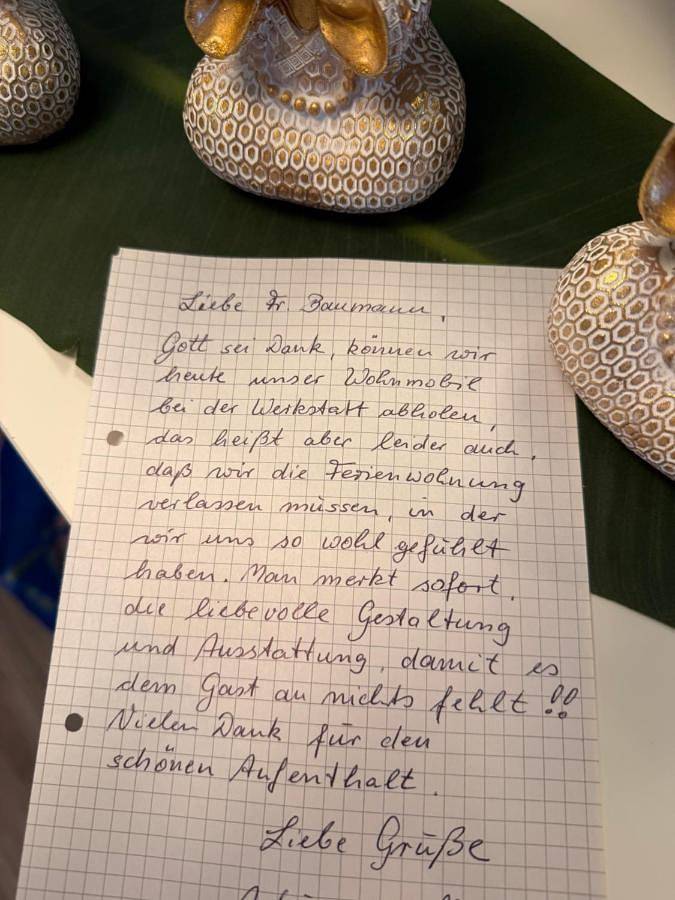 Liebe Fr. Baumann,
Gott sei Dank, können wir
heute unser Wohnmobil
bei der Werkstatt abholen,
das heißt aber leider auch,
daß wir die Ferienwohnung
verlassen müssen, in der
wir uns so wohl gefühlt
haben. Man merkt sofort,
die liebevolle Gestaltung
und Ausstattung, damit es
dem Gast an nichts fehlt!!
Vielen Dank für den
schönen Aufenthalt.
Liebe Grüße